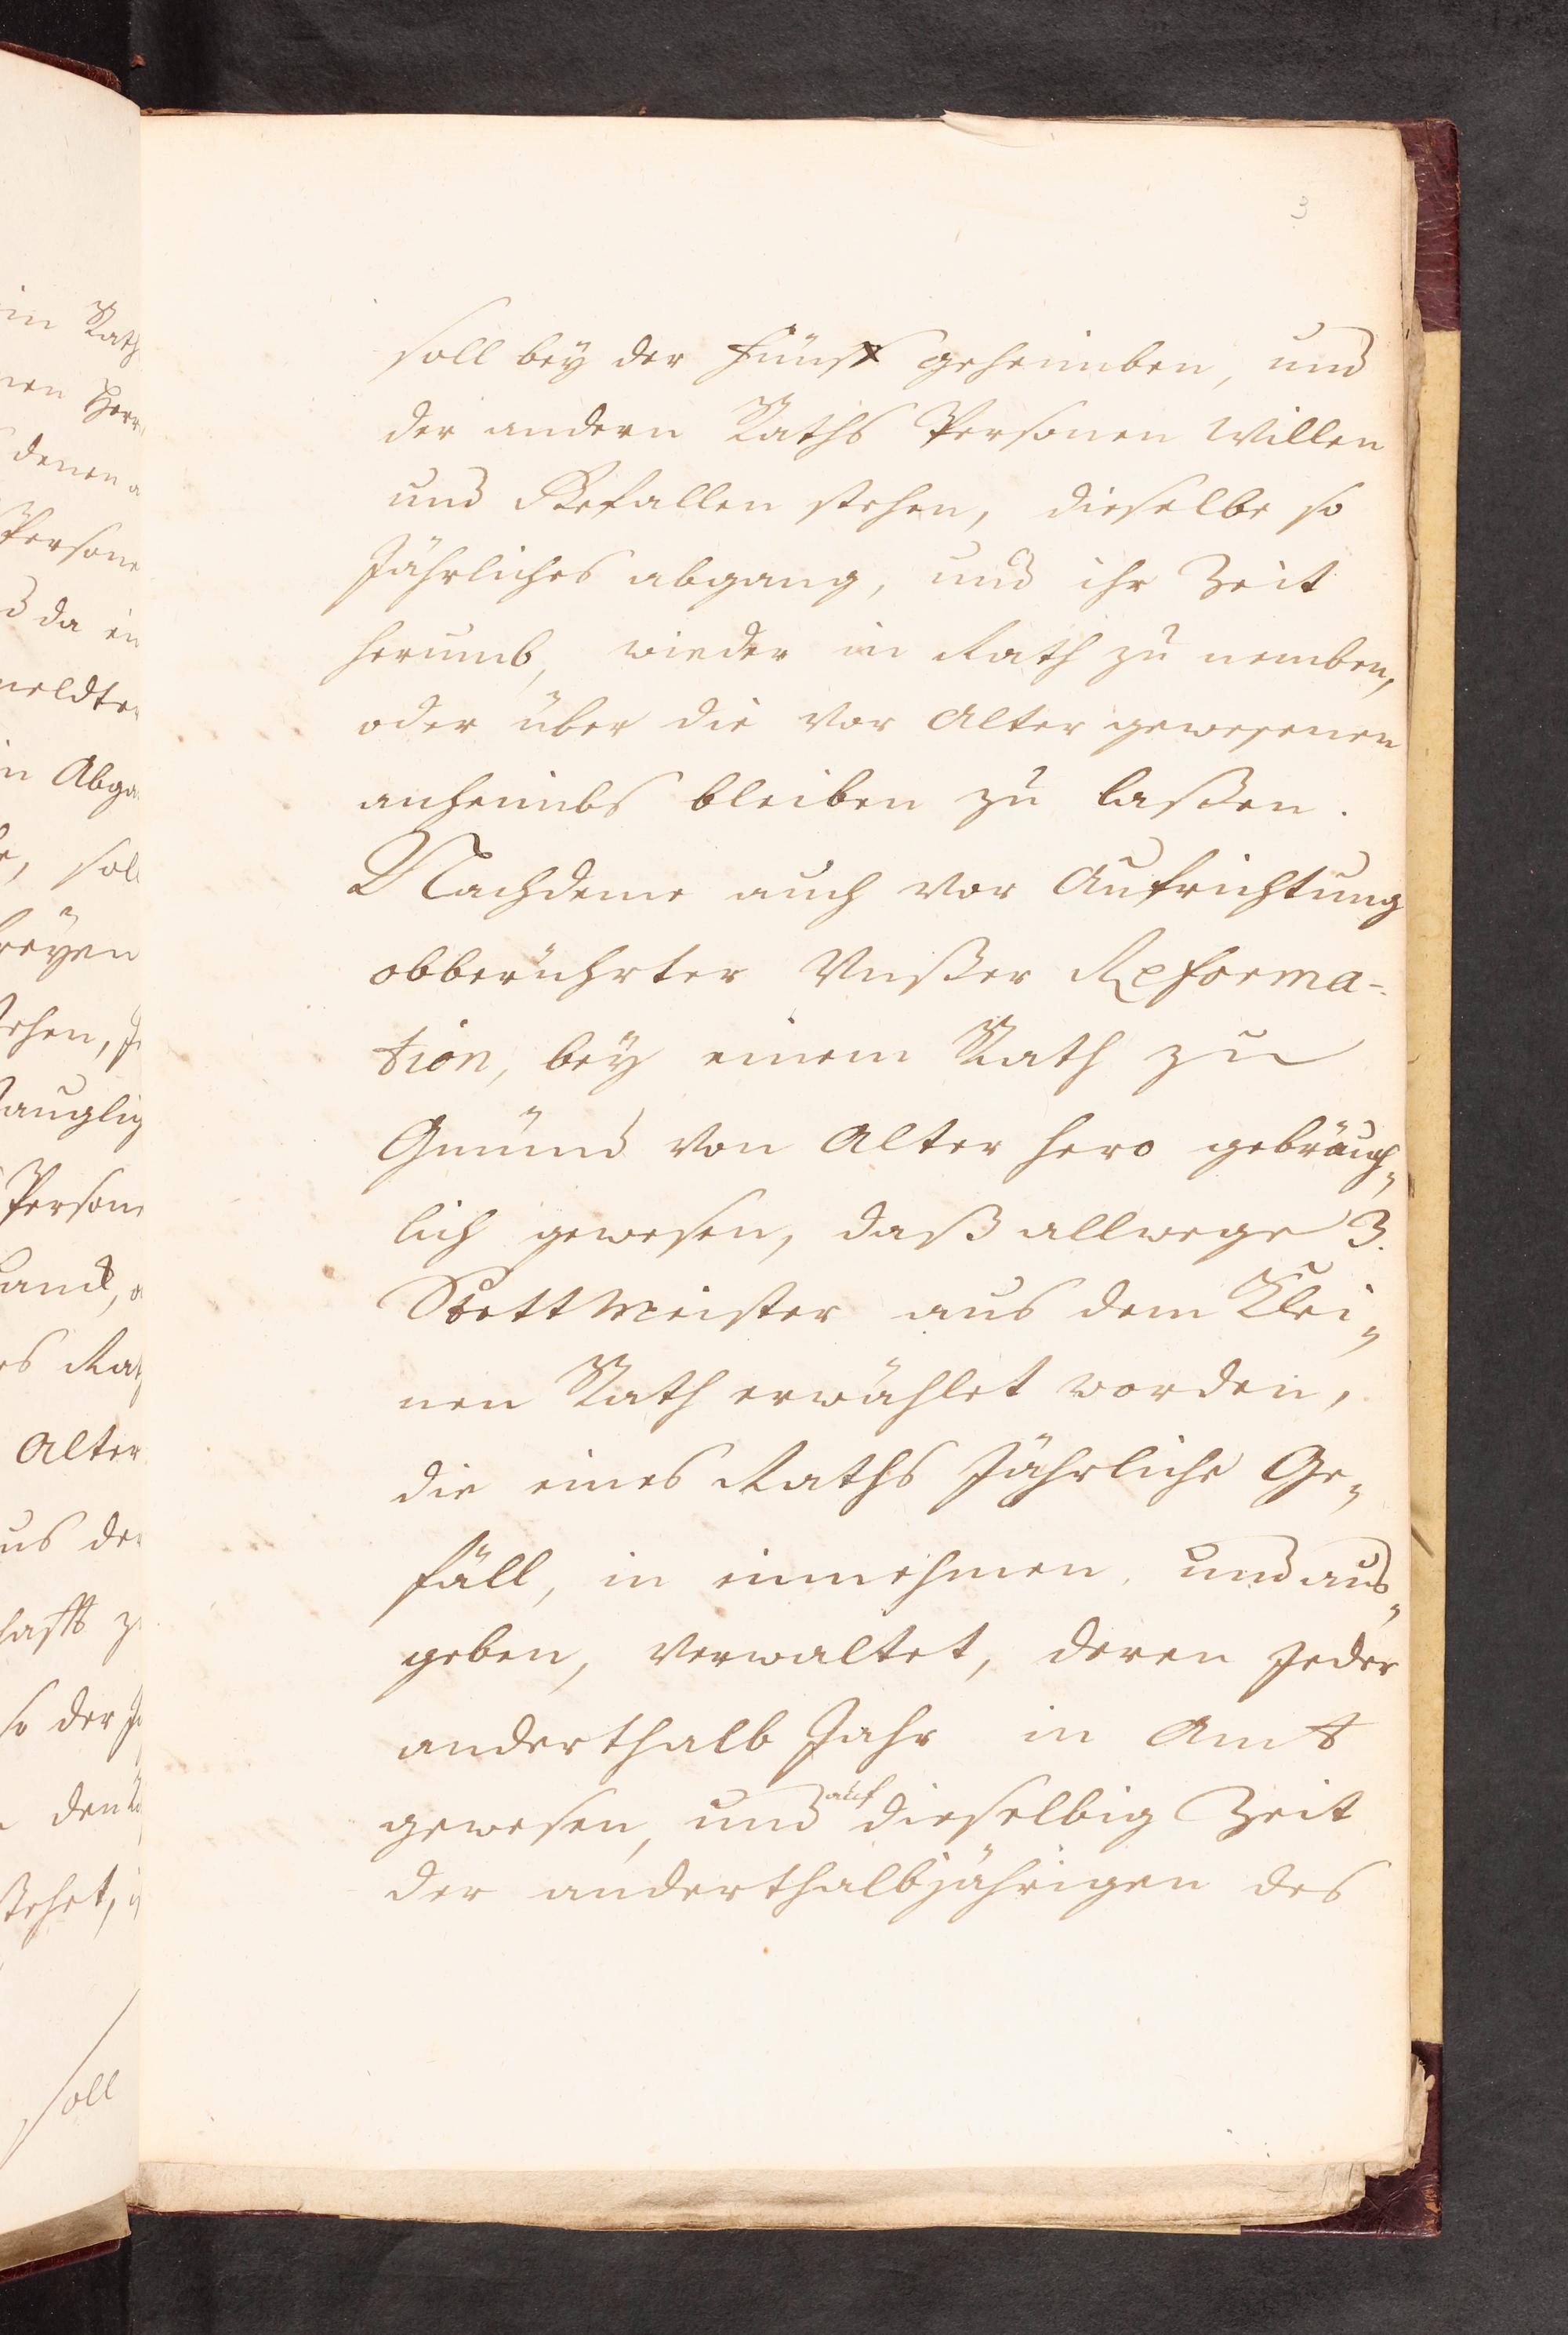 3
soll bey der fünff geheimben, und
der andern Raths Personen Willen
und Gefallen stehen, dieselbe so
Jährliches abgang, und ihr Zeit
herumb, wieder in Rath zu nemben,
oder über die vor Alter gewesenen
anheimbs bleiben zu laßen.
Nachdeme auch vor Aufrichtung
obberührter Unßer Reforma-
tion, bey einem Rath zu
Gmünd von Alter hero gebräuch„
lich gewesen, daß allwege 3.
Stettmeister aus dem Klei„
nen Rath erwählet worden,
die eines Raths Jährliche Ge„
fäll, in einnehmen, und aus„
geben, verwaltet, deren Jeder
anderthalb Jahr in Amt
gewesen, und auf dieselbig Zeit
der anderthalbjährigen des
in Rath
Persone
da ein
in Abga
soll
Alter
aus der
so der
soll